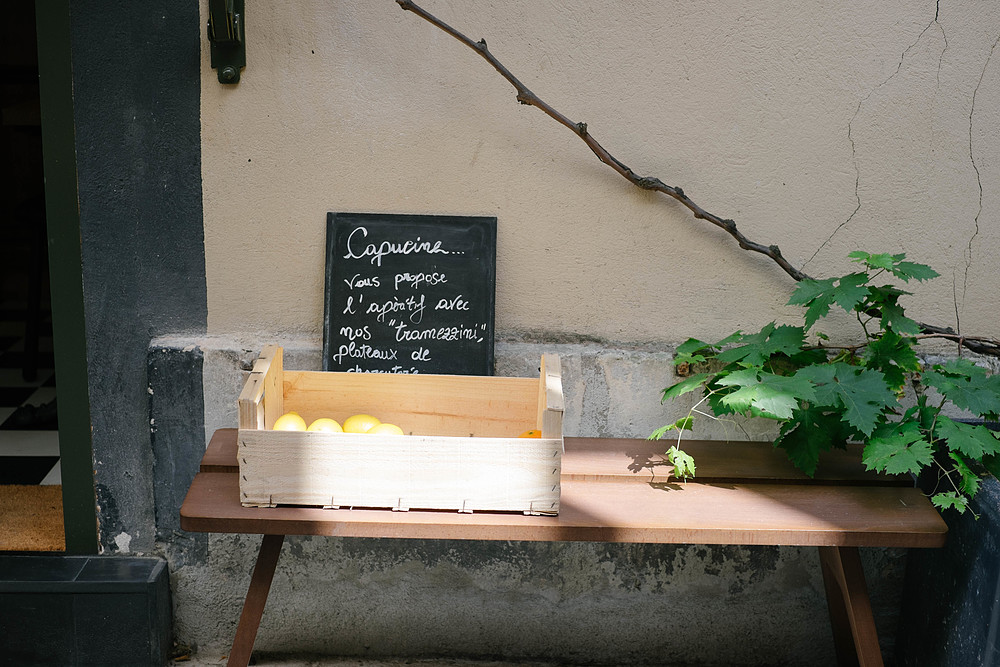 Capucine...
vous propose
l'apéritif avec
nos "tramezzini",
plateaux de
charcuterie